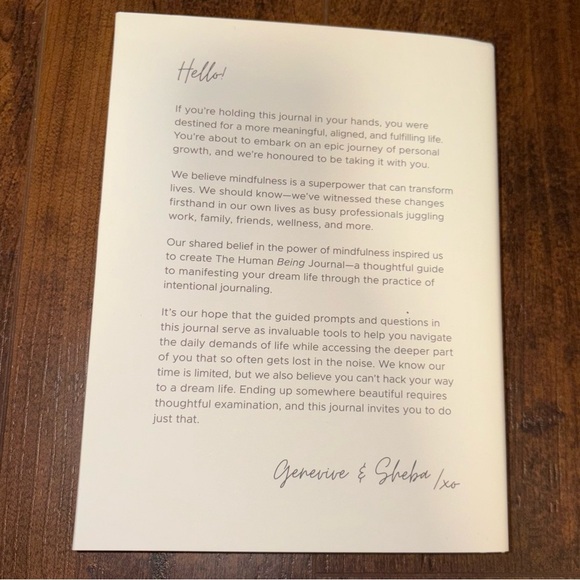 Hello!
If you're holding this journal in your hands, you were
destined for a more meaningful, aligned, and fulfilling life.
You're about to embark on an epic journey of personal
growth, and we're honoured to be taking it with you.
We believe mindfulness is a superpower that can transform
lives. We should know—we've witnessed these changes
firsthand in our own lives as busy professionals juggling
work, family, friends, wellness, and more.
Our shared belief in the power of mindfulness inspired us
to create The Human Being Journal—a thoughtful guide
to manifesting your dream life through the practice of
intentional journaling.
It's our hope that the guided prompts and questions in
this journal serve as invaluable tools to help you navigate
the daily demands of life while accessing the deeper part
of you that so often gets lost in the noise. We know our
time is limited, but we also believe you can't hack your way
to a dream life. Ending up somewhere beautiful requires
thoughtful examination, and this journal invites you to do
just that.
Genevive & Sheba /xo